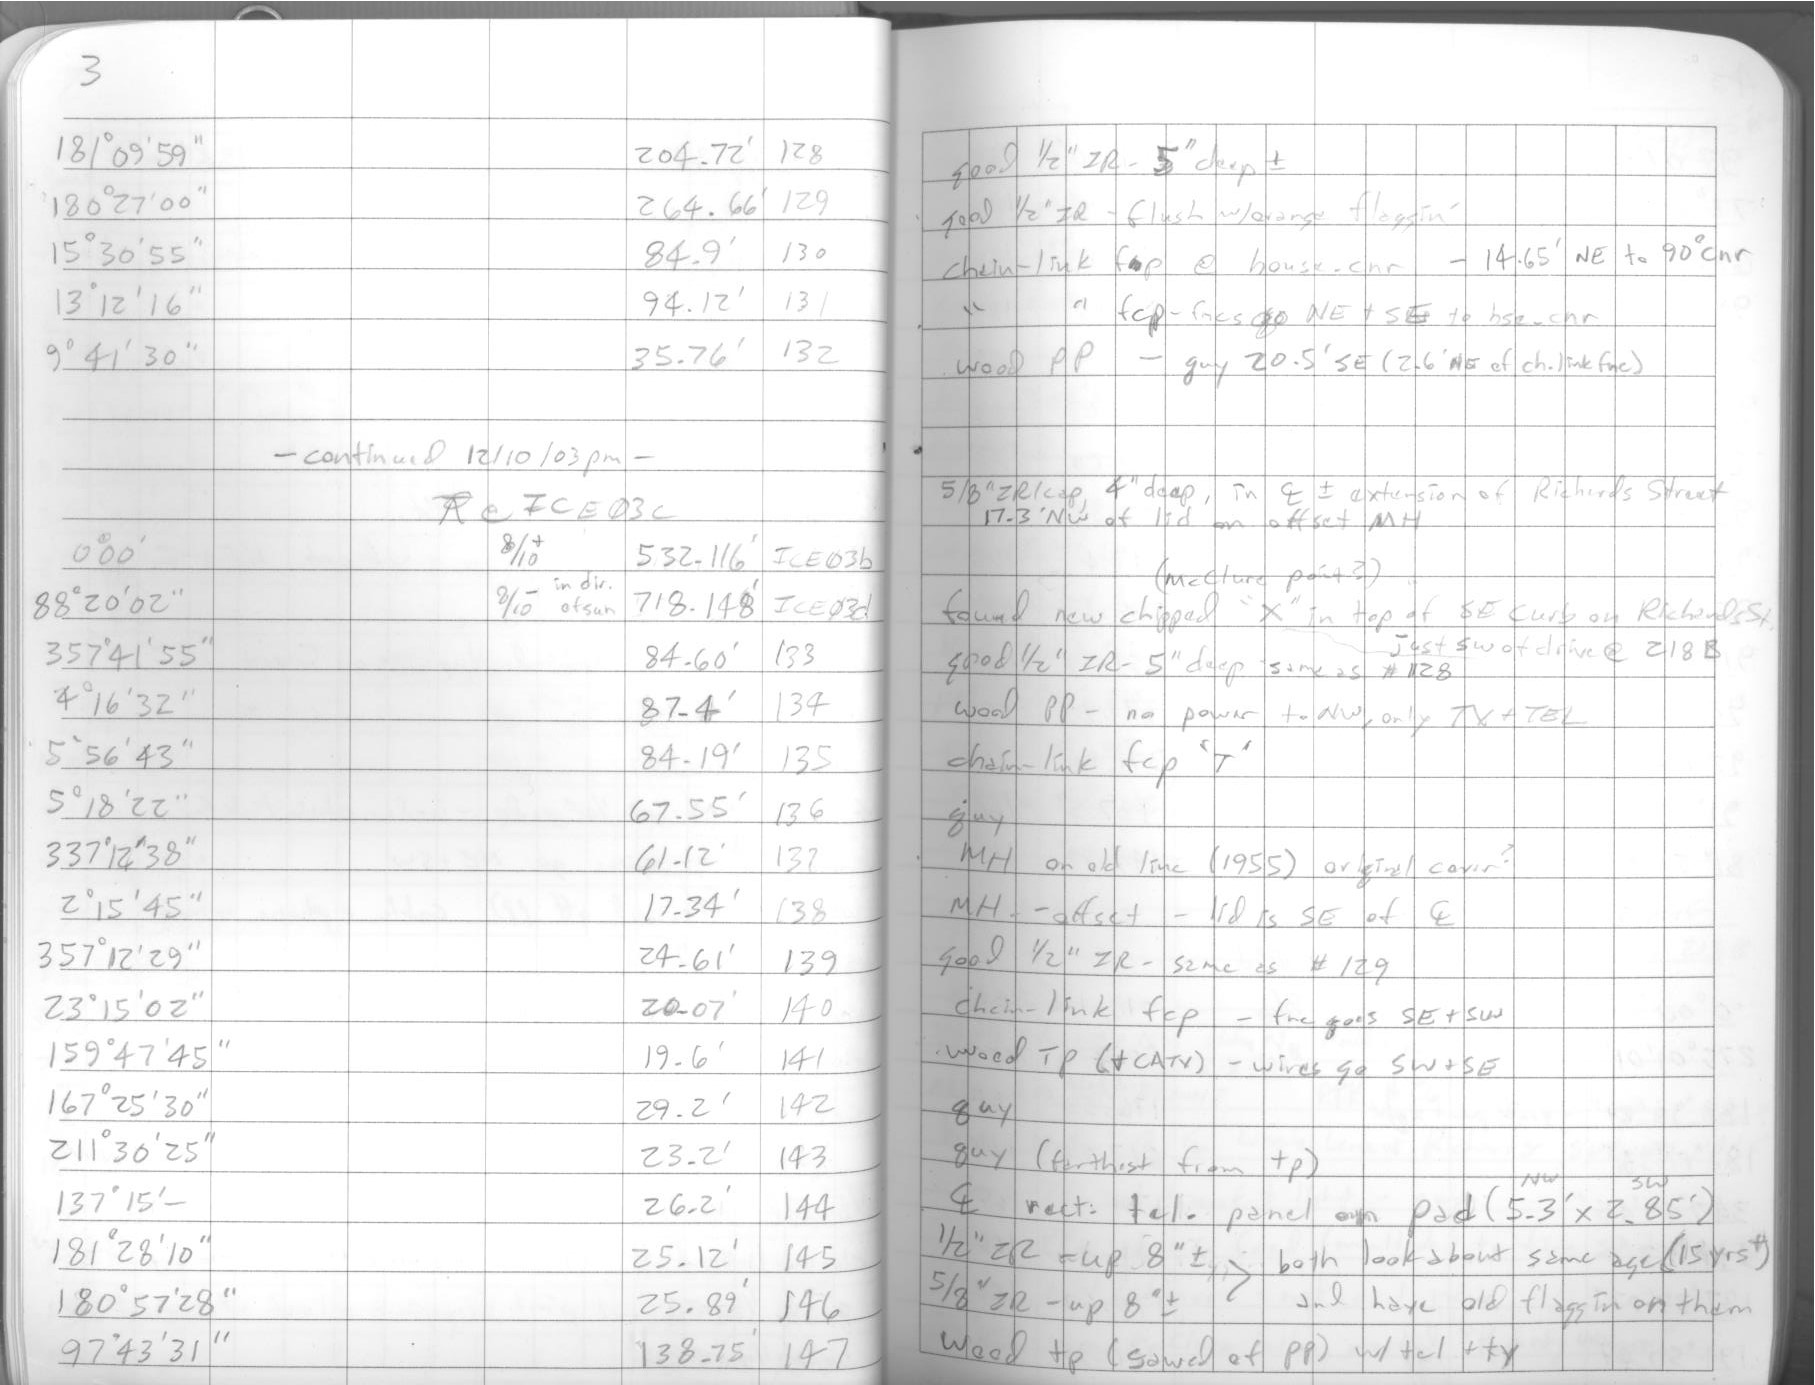 3
181°09'59" 204.72' 128 good 1/2" IR - 5" deep ±
180°27'00" 264.66' 129 good 1/2" IR - flush w/orange flaggin'
15°30'55" 84.9' 130 chain-link fcp @ house cnr - 14.65' NE to 90° cnr
13°12'16" 94.12' 131 " " fcp - fncs go NE + SE to hse. cnr
9°41'30" 35.76' 132 wood PP - guy 20.5' SE (2.6' NE of ch. link fnc)
- continued 12/10/03 pm -
⊼ @ ICEØ3c 5/8" IR/cap, 4" deep, in ℄ ± extension of Richards Street
17.3' NW of lid on offset MH
0°00' 8/10+ 532.116' ICEØ3b
(McClure point?)
88°20'02" 8/10- in dir. of sun 718.148' ICEØ3d found new chipped "X" in top of SE curb on Richards St.
just SW of drive @ 218B
357°41'55" 84.60' 133 good 1/2" IR - 5" deep same as #128
4°16'32" 87.4' 134 wood PP - no power to NW, only TV + TEL
5°56'43" 84.19' 135 chain-link fcp "T"
5°18'22" 67.55' 136 guy
337°12'38" 61.12' 137 MH on old line (1955) original cover?
2°15'45" 17.34' 138 MH - offset - lid is SE of ℄
357°12'29" 24.61' 139 good 1/2" IR - same as #129
23°15'02" 20.07' 140 chain-link fcp - fnc goes SE + SW
159°47'45" 19.6' 141 wood TP (+CATV) - wires go SW + SE
167°25'30" 29.2' 142 guy
211°30'25" 23.2' 143 guy (farthest from tp)
NW SW
137°15'- 26.2' 144 ℄ rect. tel. panel on pad (5.3' x 2.85')
181°28'10" 25.12' 145 1/2" IR - up 8" ± > both look about same age (15 yrs±)
180°57'28" 25.89' 146 5/8" IR - up 8" ± and have old flaggin on them
97°43'31" 138.75' 147 wood tp (sawed of PP) w/ tel + tv